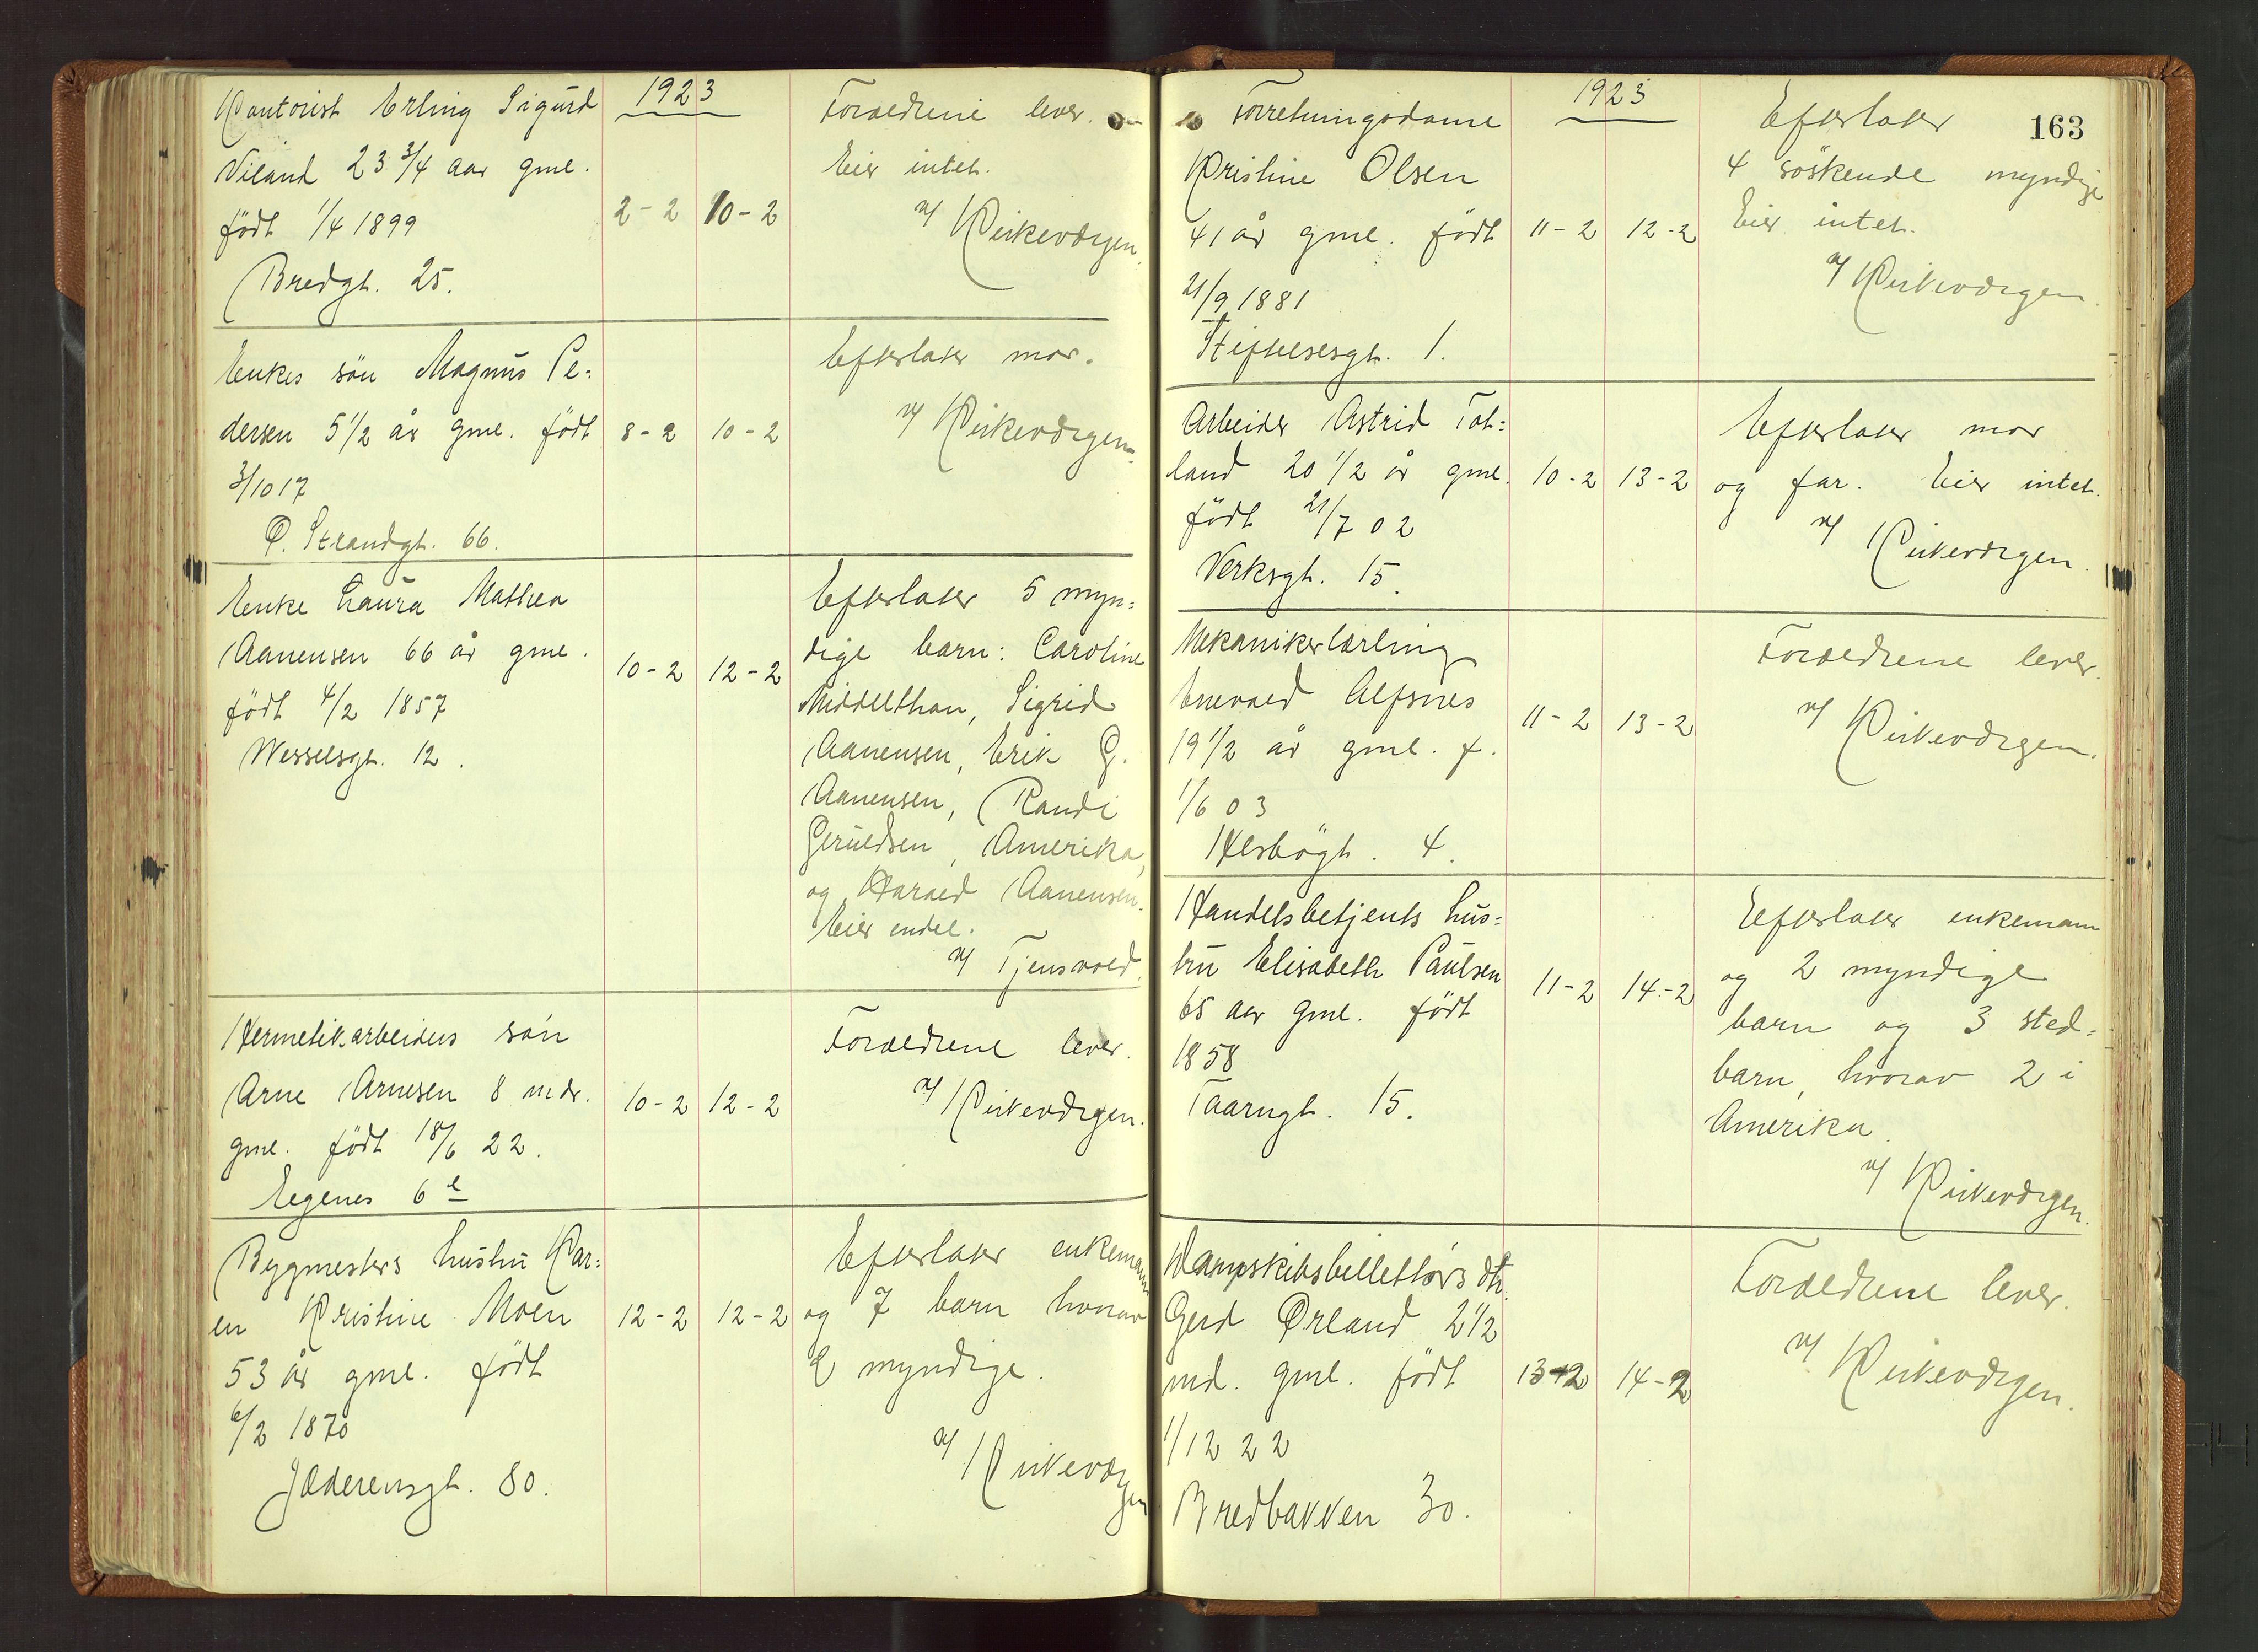 1923
Kontorist Erling Sigurd
Viland 23 3/4 aar gml.
født 1/4 1899
Bredgt. 25.
2-2 10-2
Forældrene lever.
Eier intet.
v/ Kirkevergen.
Enkes søn Magnus Pe-
dersen 5 1/2 år gml. født
3/10 17
Ø. Strandgt. 66.
8-2 10-2
Efterlater mor.
v/ Kirkevergen.
Enke Laura Mathea
Aanensen 66 år gml.
født 4/2 1857
Wesselsgt. 12.
10-2 12-2
Efterlater 5 myn-
dige barn: Caroline
Middelthon, Sigrid
Aanensen, Erik G.
Aanensen, Randi
Amerika,
og Harald Aanensen.
Eier endel.
v/ Tjensvold.
Hermetikarbeiders søn
Arne Arnesen 8 mdr.
gml. født 18/6 22.
Egenes 6 e
10-2 12-2
Forældrene lever.
v/ Kirkevergen.
Bygmesters hustru Kar-
en Kristine Moen
53 år gml. født
6/2 1870
Jæderensgt. 80.
12-2 12-2
Efterlater enkemann
og 7 barn hvorav
2 myndige.
v/ Kirkevergen
163
1923
Forretningsdame
Kristine Olsen
41 år gml. født
21/9 1881
Stiftelsesgt. 1.
11-2 12-2
Efterlater
4 søskende myndige
Eier intet.
v/ Kirkevergen.
Arbeider Astrid Tot-
land 20 1/2 år gml.
født 21/7 02
Verksgt. 15.
10-2 13-2
Efterlater mor
og far. Eier intet.
v/ Kirkevergen.
Mekanikerlærling
Enevald Alfsnes
19 1/2 år gml. f.
1/6 03
4.
11-2 13-2
Forældrene lever.
v/ Kirkevergen.
Handelsbetjents hus-
tru Elisabeth Paulsen
65 aar gml. født
1858
Taarngt. 15.
11-2 14-2
Efterlater enkemann
og 2 myndige
barn og 3 sted-
barn, hvorav 2 i
Amerika.
v/ Kirkevergen.
Dampskibsbillettørs dtr.
Gerd Ørland 2 1/2
md. gml. født
1/12 22
Bredbakken 30.
13-2 14-2
Forældrene lever.
v/ Kirkevergen.